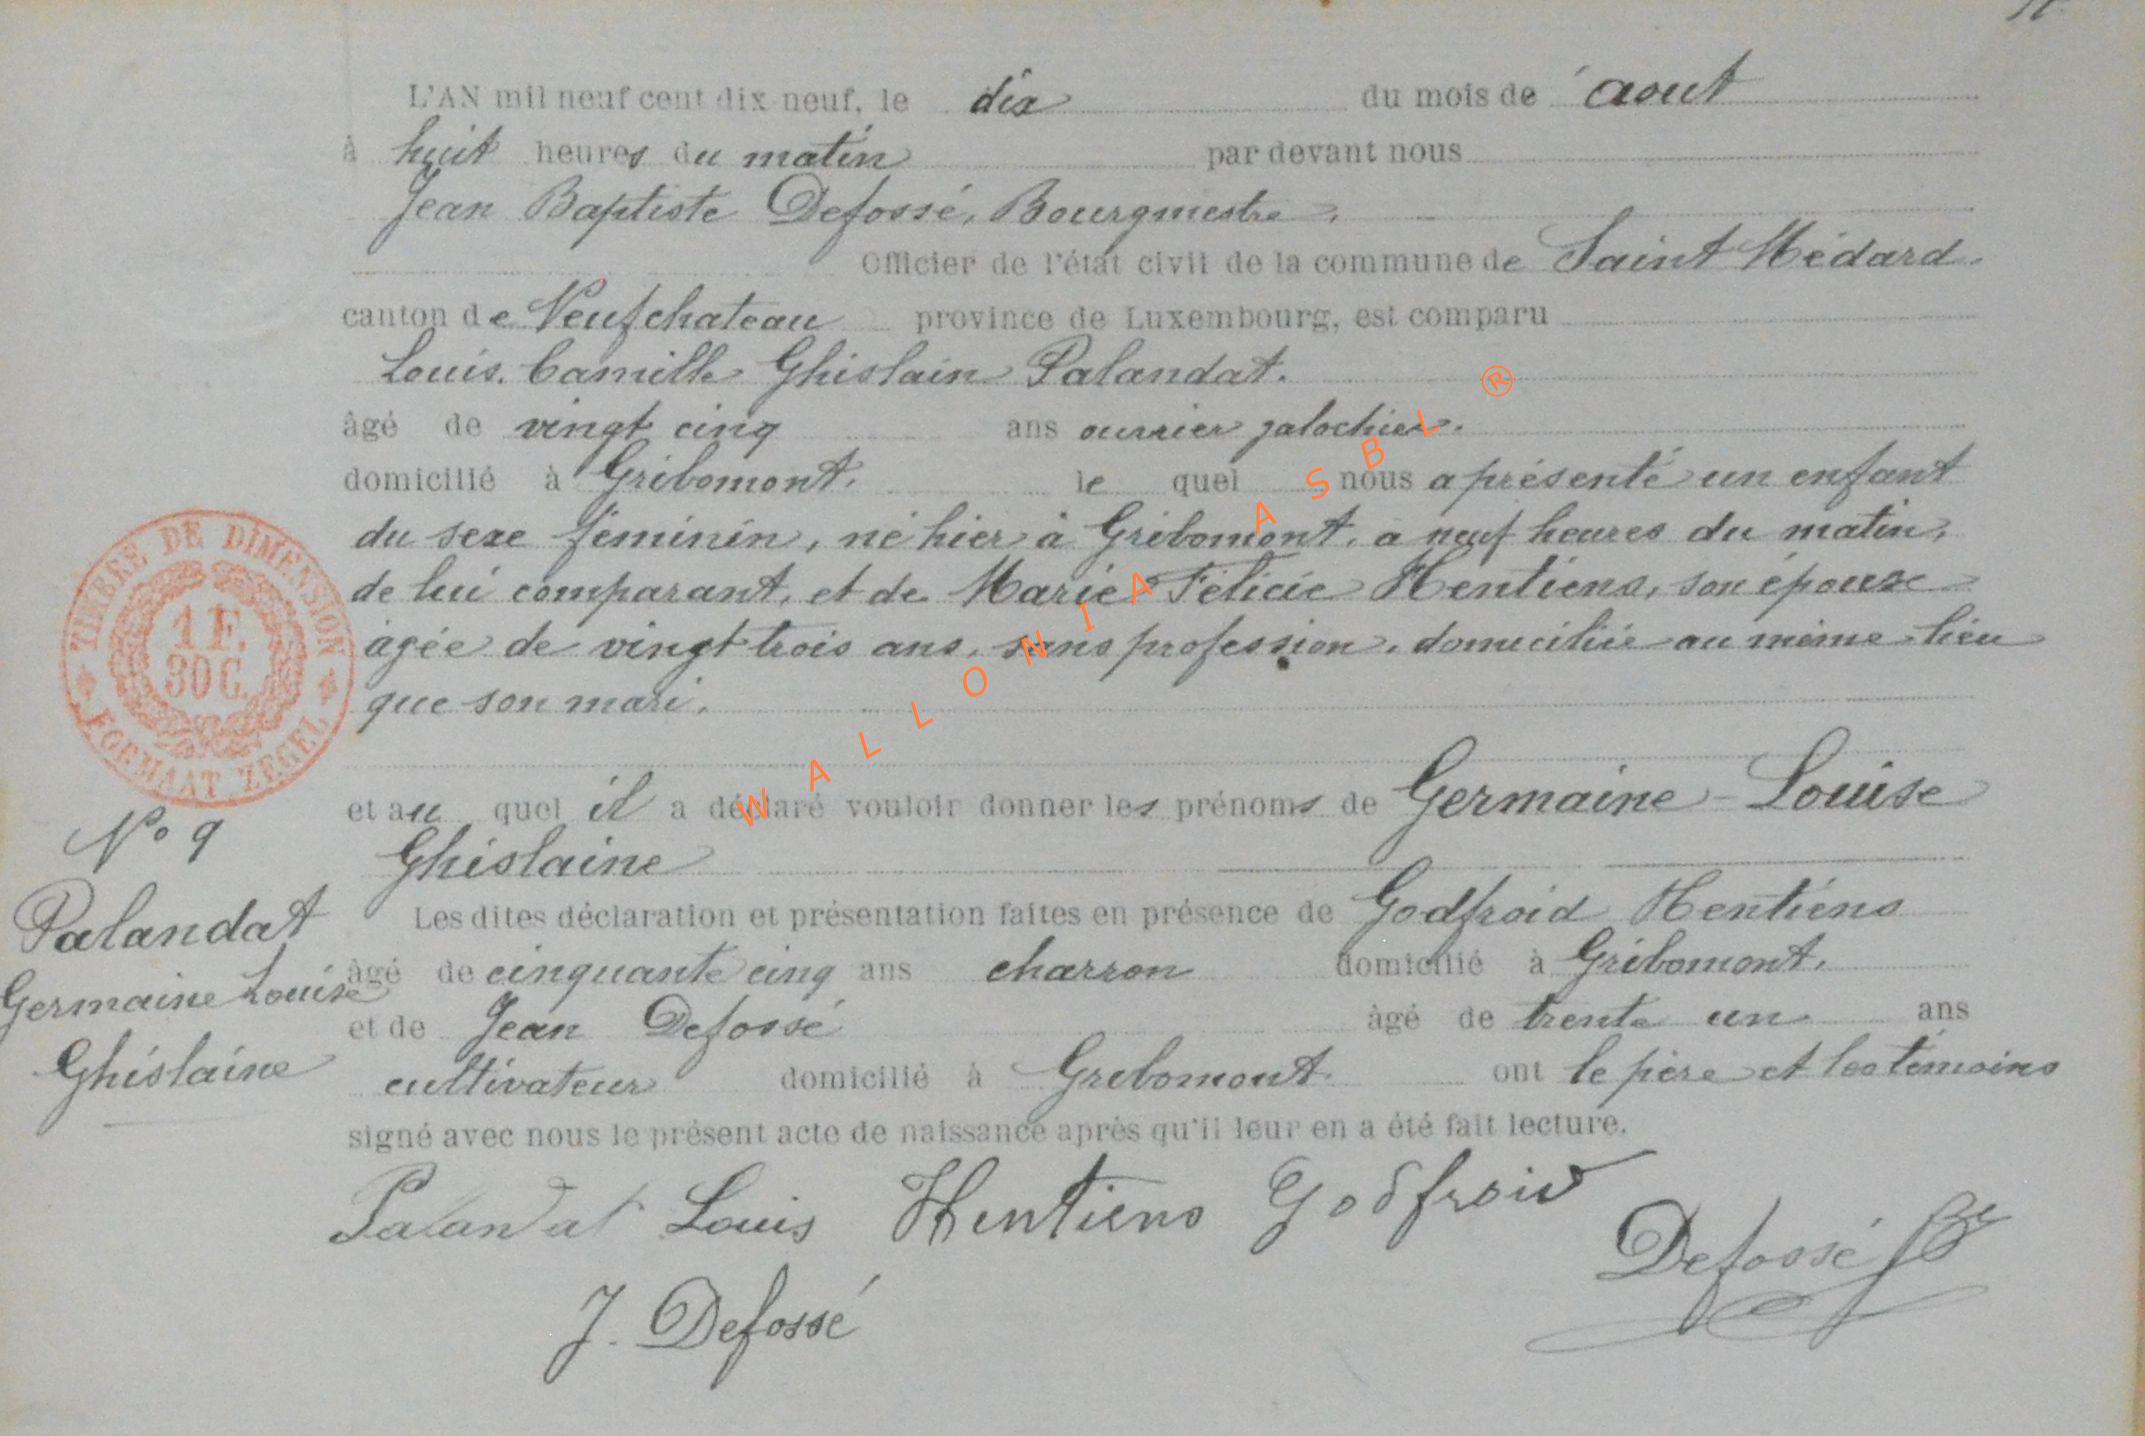 L'AN mil neuf cent dix neuf, le dix du mois de aout
à huit heures du matin par devant nous
Jean Baptiste Defossé, Bourgmestre,
Officier de l'état civil de la commune de Saint Médard.
canton de Neufchateau province de Luxembourg, est comparu
Louis. Camille Ghislain Palandat.
âgé de vingt cinq ans ouvrier galochier.
domicilié à Gribomont. le quel nous a présenté un enfant
du sexe féminin, né hier à Gribomont. a neuf heures du matin,
de lui comparant, et de Marie Félicie Hentiens, son épouse
agée de vingt trois ans. sans profession. domiciliée au même lieu
que son mari.
et au quel il a déclaré vouloir donner les prénoms de Germaine - Louise
Ghislaine
Les dites déclaration et présentation faites en présence de Godfroid Hentiens
âgé de cinquante cinq ans charron domicilié à Gribomont.
et de Jean Defossé âgé de trente un ans
cultivateur domicilié à Gribomont. ont le père et les témoins
signé avec nous le présent acte de naissance après qu'il leur en a été fait lecture.
Palandat Louis Hentiens Godfroid
Defossé
J. Defossé
TIMBRE DE DIMENSION
1 F.
30 C.
FORMAAT ZEGEL
N° 9
Palandat
Germaine Louise
Ghislaine
WALLONIA ASBL ®